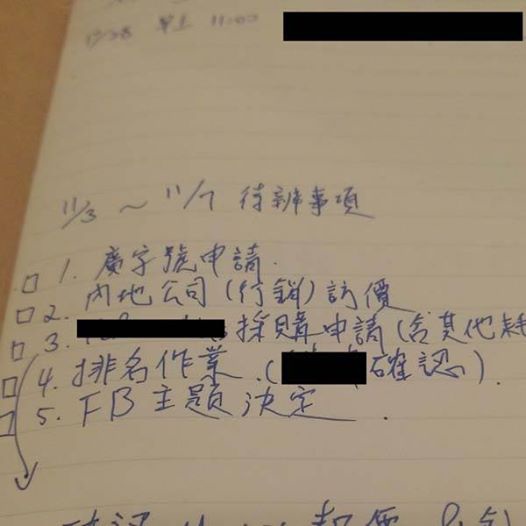 早上 11:00
11/3 ~ 11/7 待辦事項
1. 廣字號申請.
2. 內地公司(行銷)訪價
3. 採購申請(含其他耗
4. 排名作業.(確認).
5. FB 主題決定.